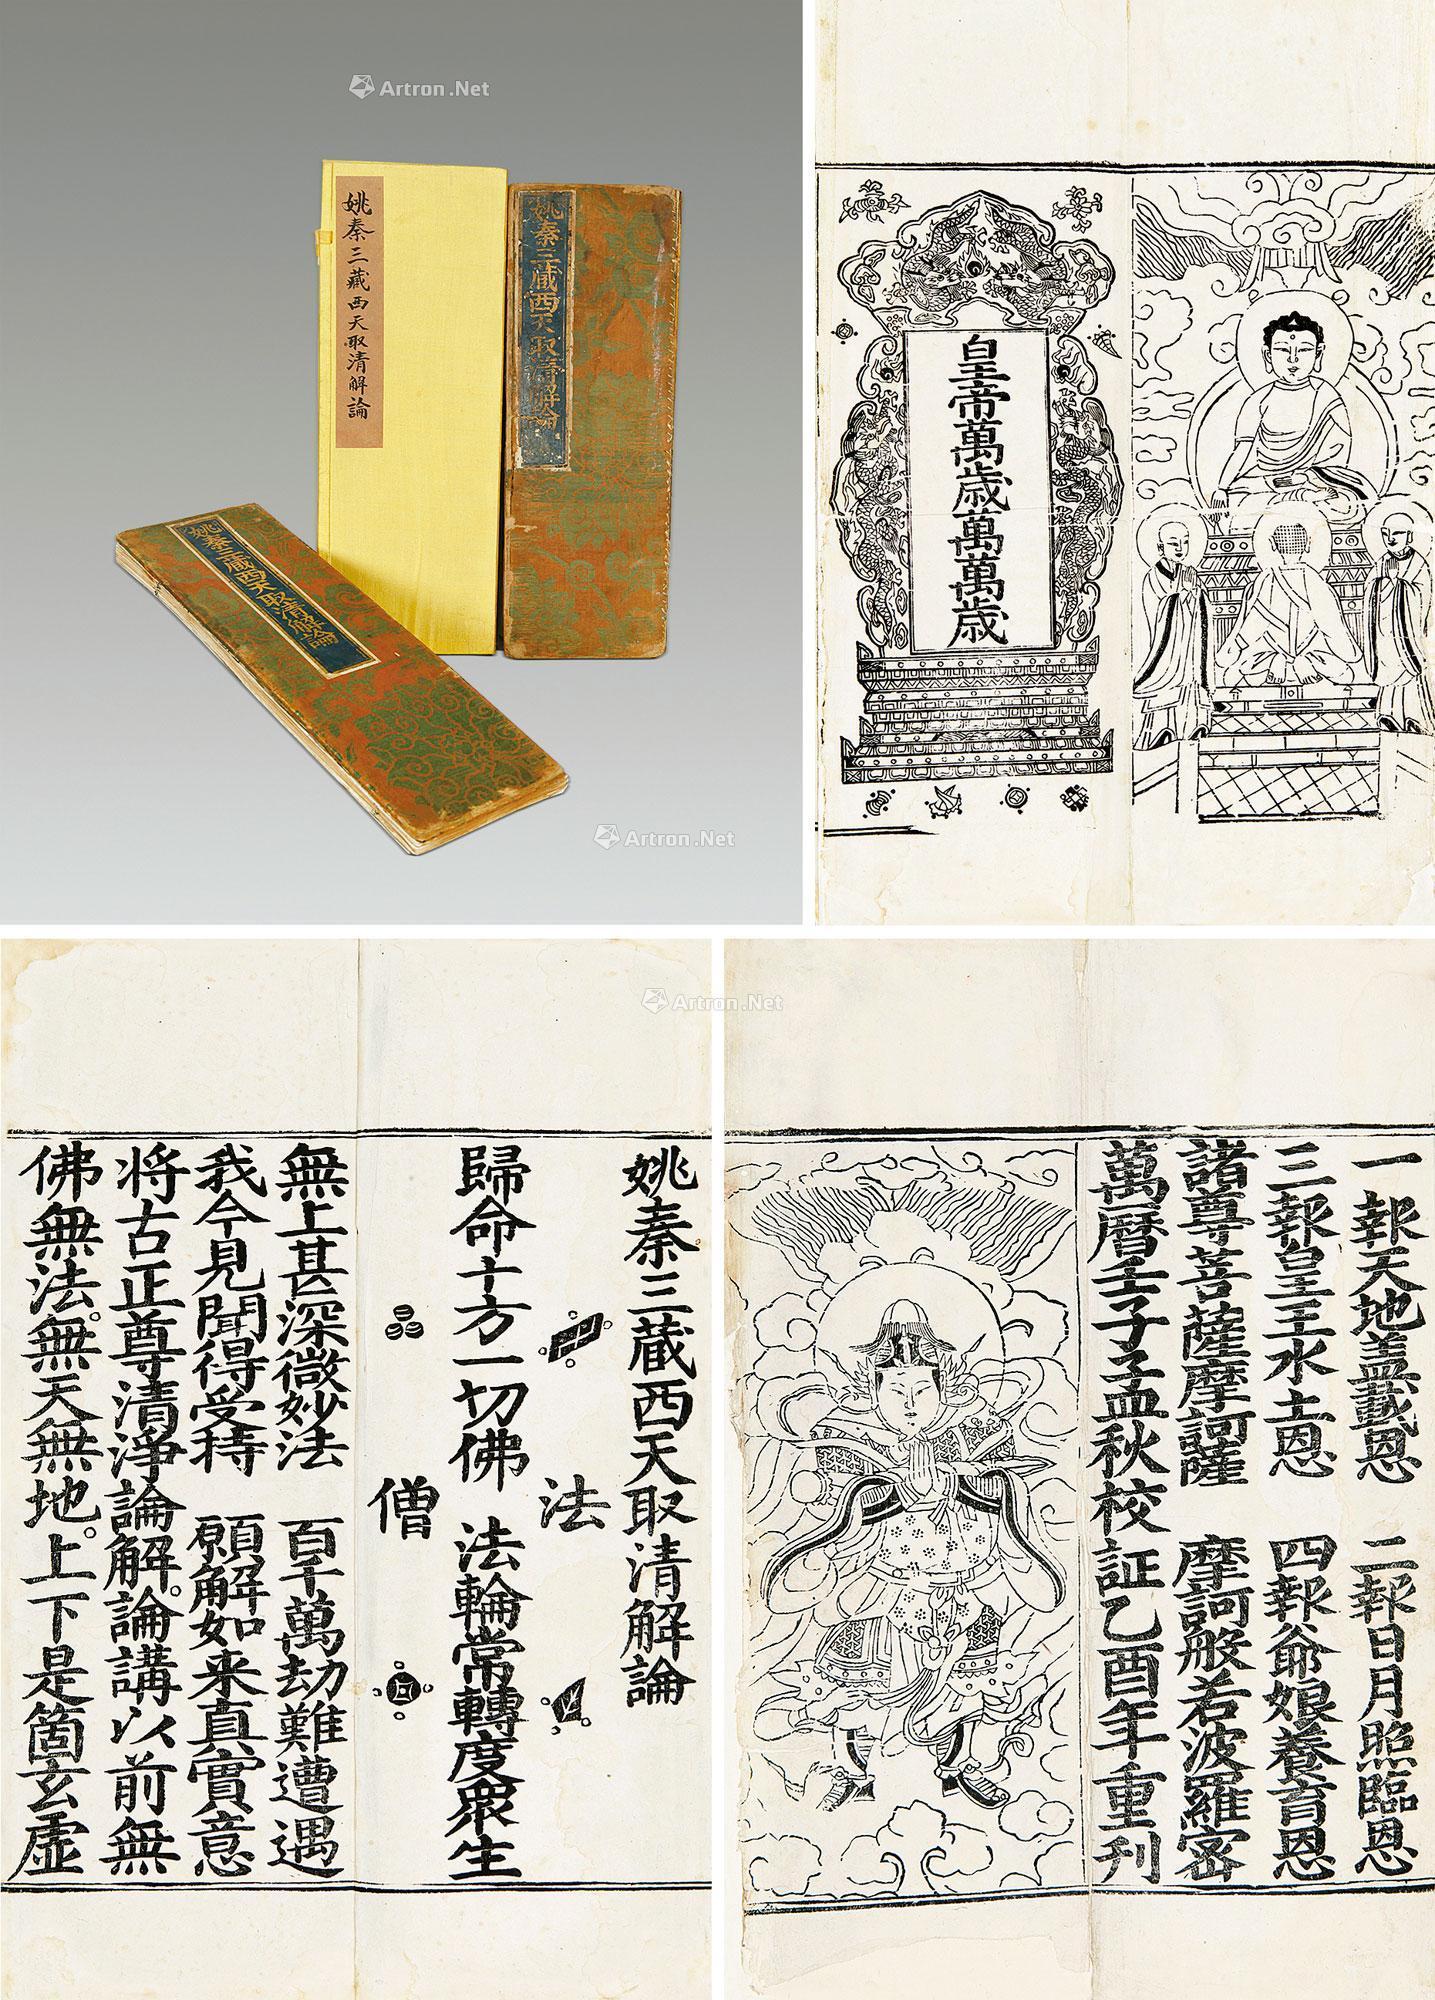 Artron.Net
姚秦三藏西天取清解論
姚秦三蔵西天取清解論
姚秦三蔵西天取清解論
Artron.Net
皇帝萬歳萬萬歳
Artron.Net
姚秦三蔵西天取清解論
法
歸命十方一切佛 法輪常轉度衆生
僧
無上甚深微妙法 百千萬劫難遭遇
我今見聞得受持 願解如来真實意
将古正尊清淨論解。論講以前無
佛無法。無天無地。上下是箇玄虛
一報天地盖載恩 二報日月照臨恩
三報皇王水土恩 四報爺娘養育恩
諸尊菩薩摩訶薩 摩訶般若波羅密
萬曆壬子孟秋校証乙酉年重刋